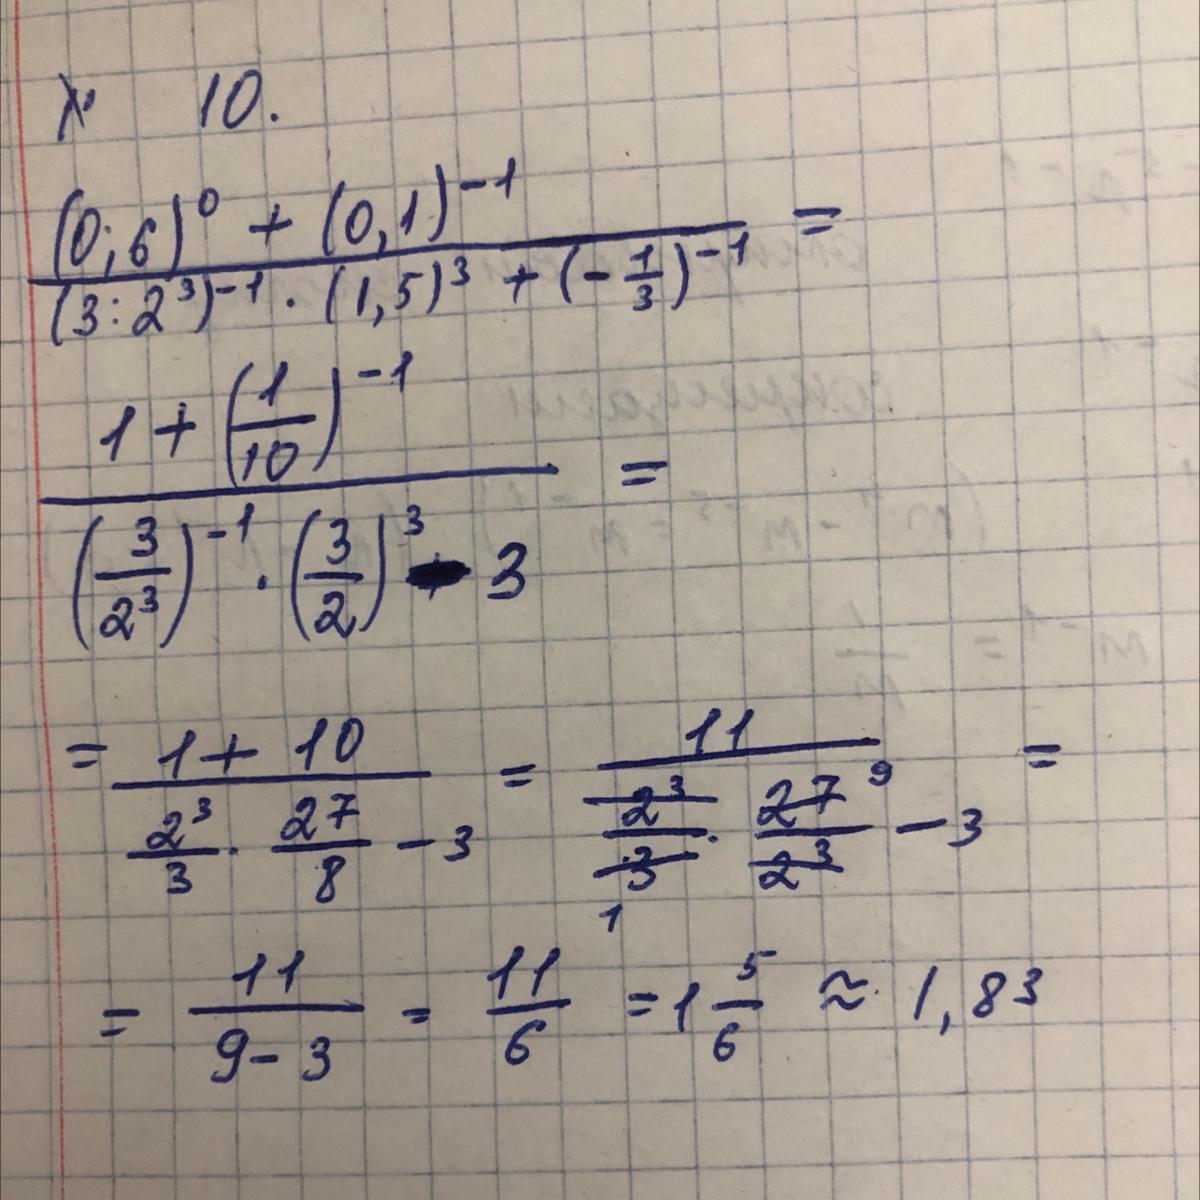 № 10.
(0;6)^0 + (0,1)^-1 / (3:2^3)^-1 · (1,5)^3 + (-1/3)^-1 =
1 + (1/10)^-1 / (3/2^3)^-1 · (3/2)^3 - 3 =
= 1 + 10 / 2^3/3 · 27/8 - 3 = 11 / 2^3/3 1 · 27 9/2^3 - 3 =
= 11 / 9 - 3 = 11/6 = 1 5/6 ≈ 1,83